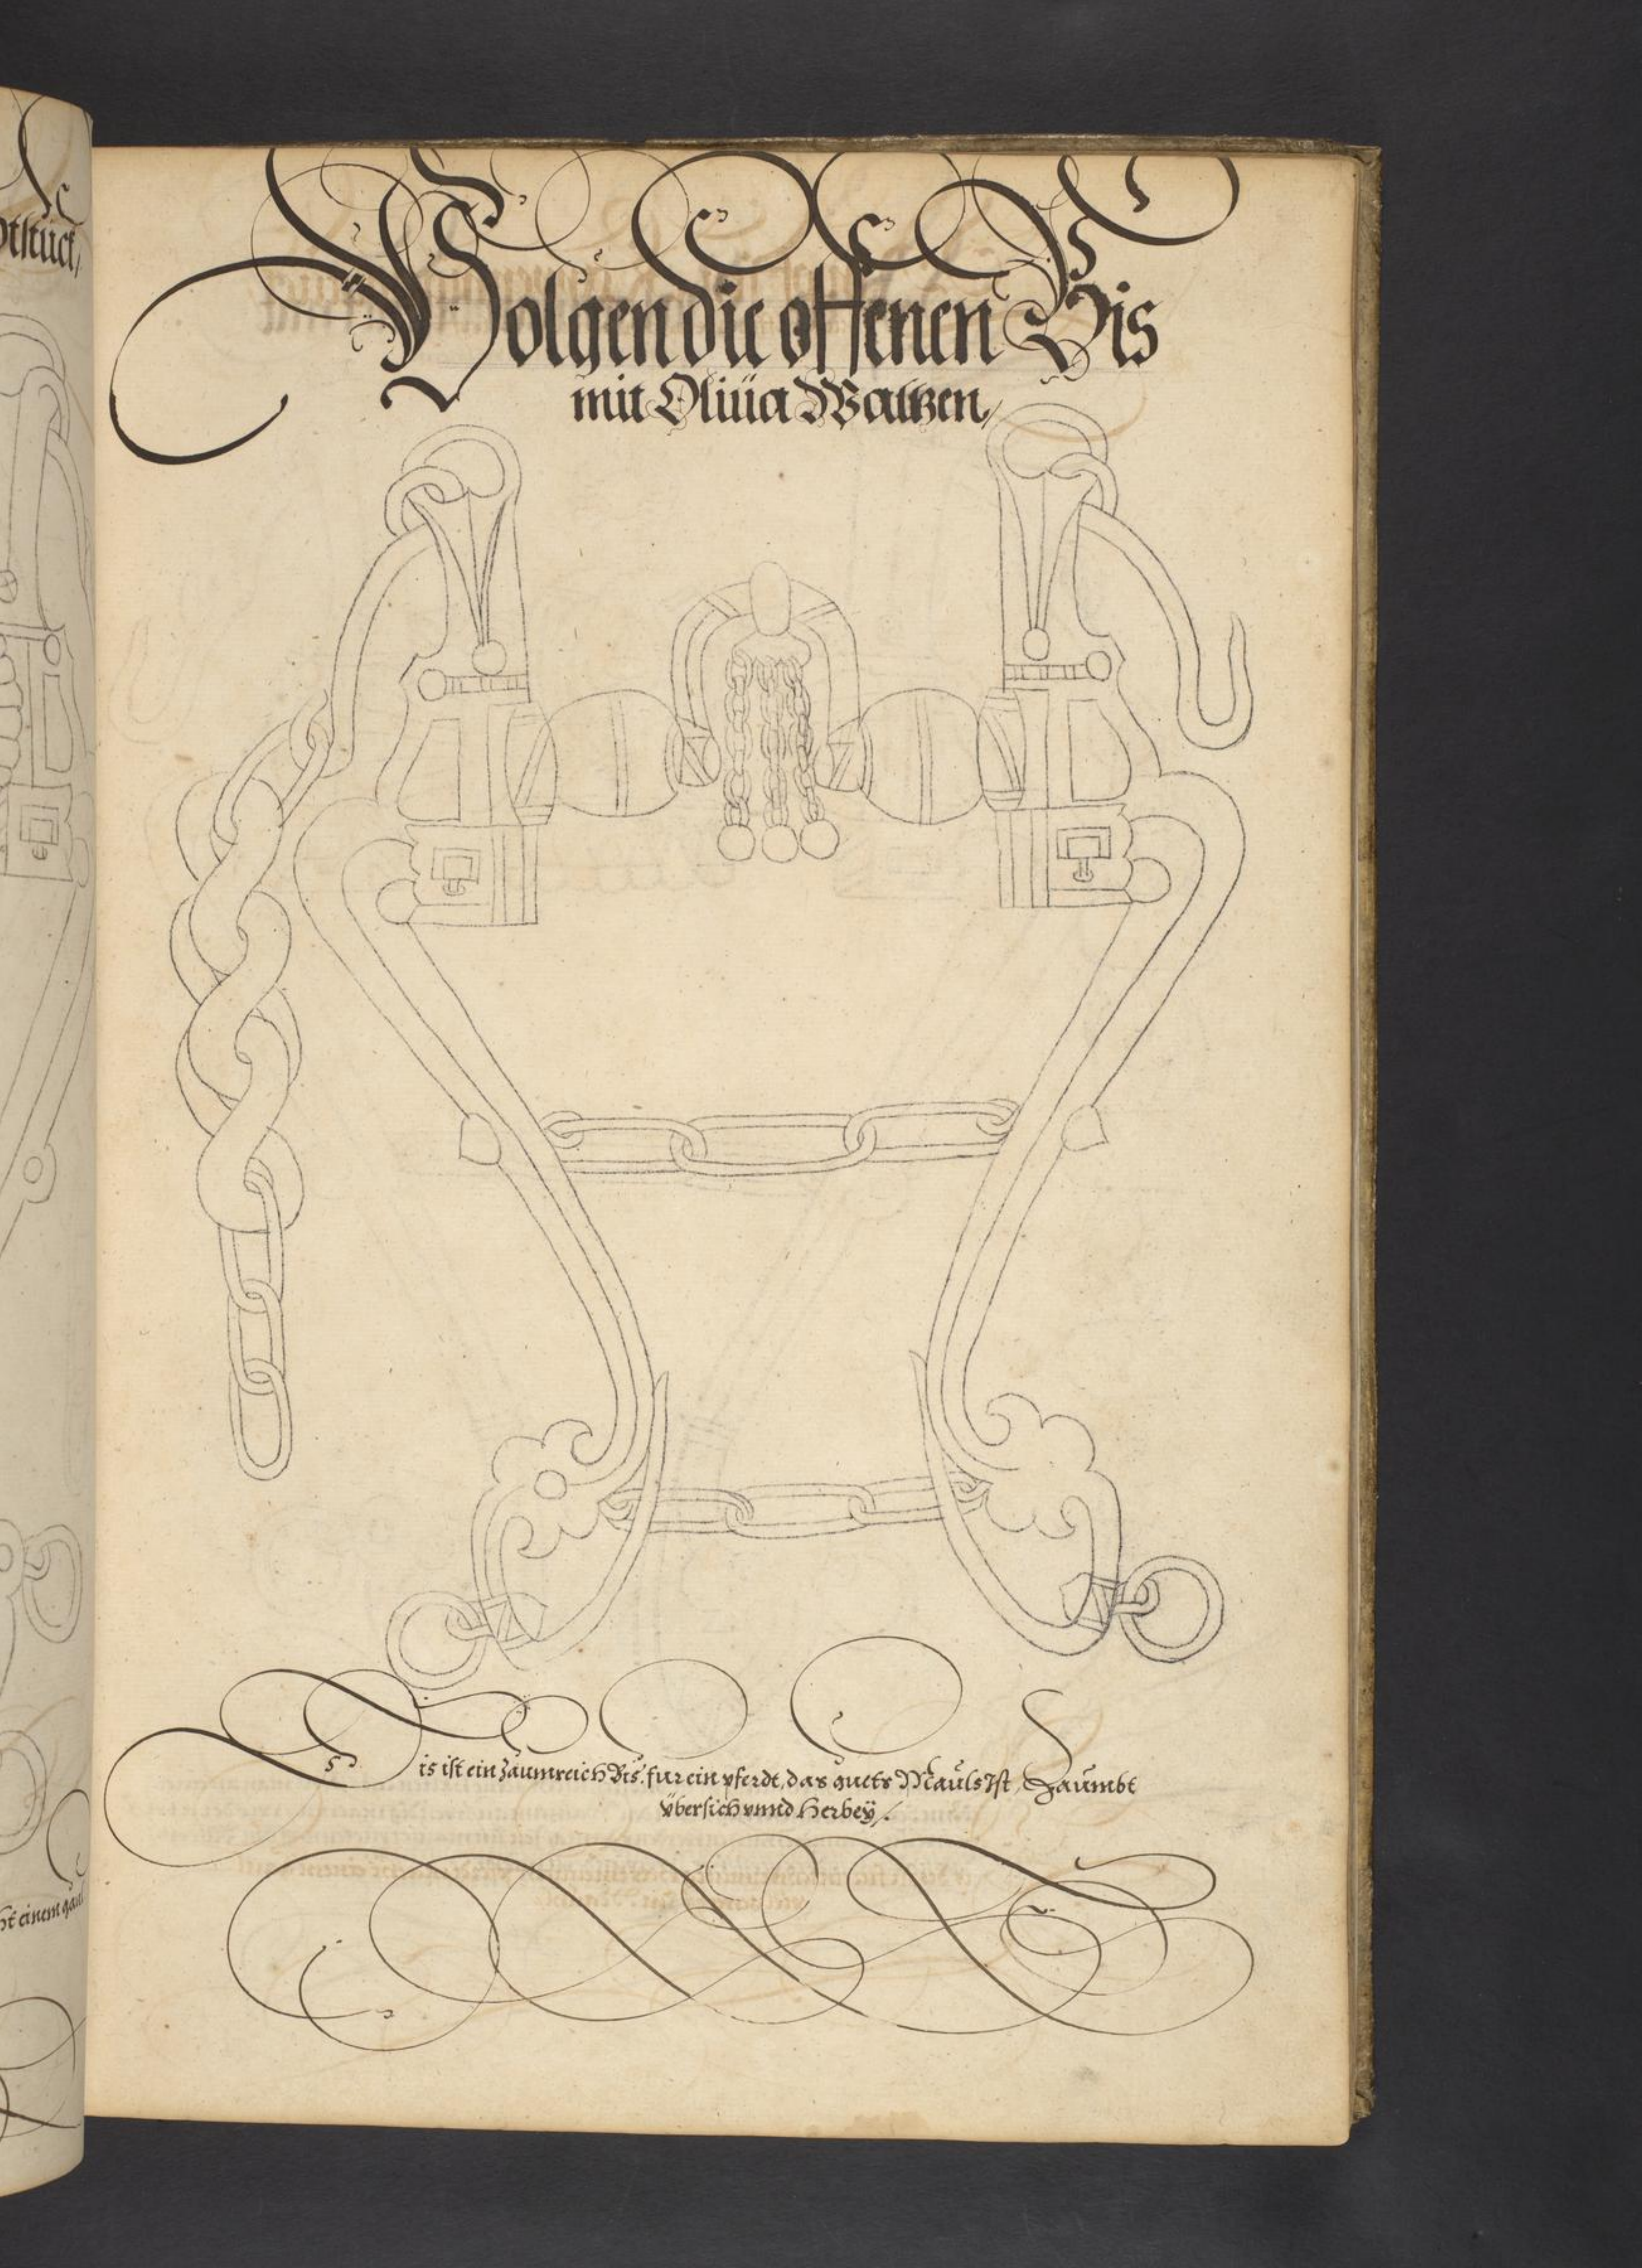 Volgen die offenen Bis
mit Oliüa Waltzen,
Dis ist ein zaumreich Bis, fur ein pferdt, das guets Mauls Ist, Zaumbt
übersich vnnd Herbeÿ.
otstück,
ht einem gaul